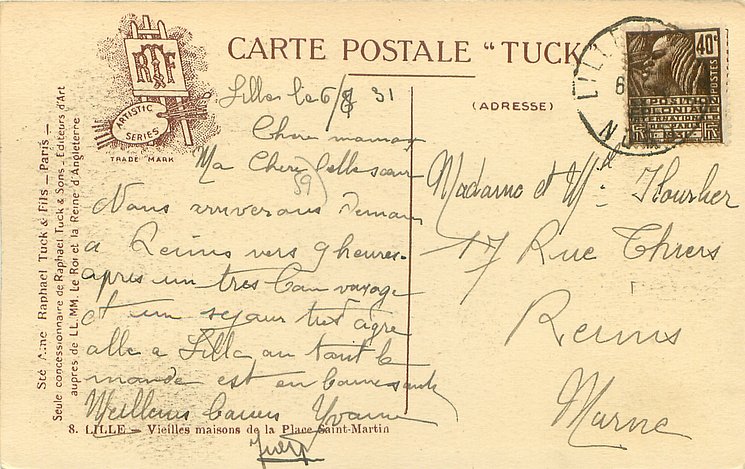 RTF
ARTISTIC
SERIES
TRADE MARK
CARTE POSTALE "TUCK
(ADRESSE)
Sté Ame Raphael Tuck & Fils — Paris —
Seule concessionnaire de Raphael Tuck & Sons - Editeurs d'Art
aupres de LL. MM. Le Roi et la Reine d'Angleterre
LILLE
NORD
40c
POSTES
EXPOSITION
COLONIALE
INTERNATIONALE
PARIS
Lille le 6/8 31
Chere maman
Ma Chere belle soeur
59
Nous arriverons demain
a Reims vers 9 heures.
apres un tres bon voyage
et un sejour tres agre
able a Lille ou tout le
monde est en bonne santé
Meilleurs baisers Yvonne
Madame et Mlle Hourlier
17 Rue Thiers
Reims
Marne
8. LILLE — Vieilles maisons de la Place Saint-Martin